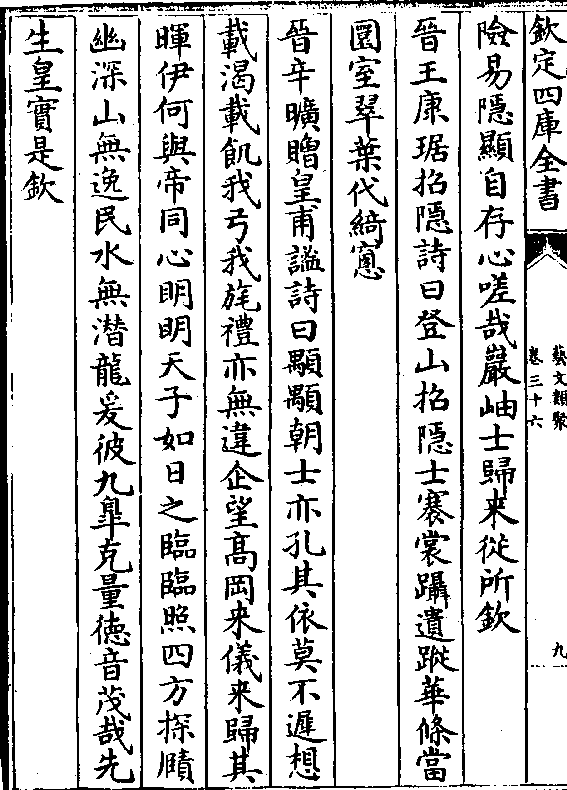 欽定四庫全書
藝文類聚
卷三十六
九
險易隱顯自存心嗟哉巖岫士歸来從所欽
晉王康琚招隱詩曰登山招隱士褰裳躡遺蹤華條當
圜室翠葉代綺窻
晉辛曠贈皇甫謐詩曰顒顒朝士亦孔其依莫不遲想
載渴載飢我弓我旄禮亦無違企望髙岡来儀来歸其
暉伊何與帝同心明明天子如日之臨臨照四方探賾
幽深山無逸民水無潜龍爰彼九臯克量徳音茂哉先
生皇實是欽